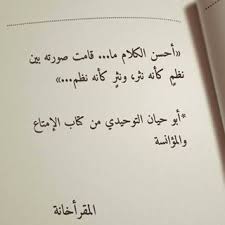 «أحسن الكلام ما... قامت صورته بين
نظمٍ كأنه نثر، ونثرٍ كأنه نظم...»
*أبو حيان التوحيدي من كتاب الإمتاع
والمؤانسة
المقرأخانة